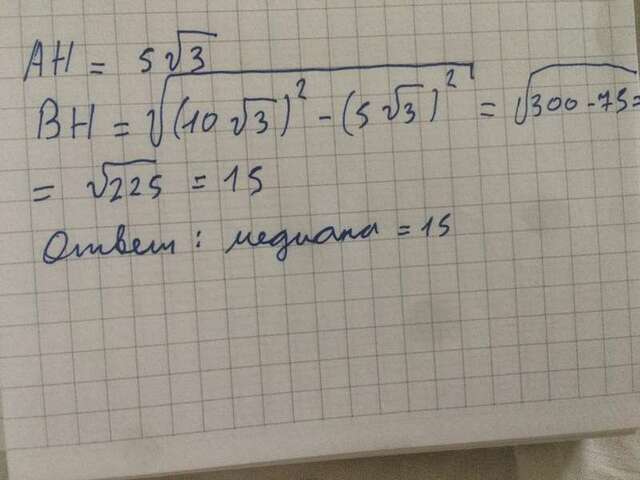 AH = 5√3
BH = √(10√3)² - (5√3)² = √300 - 75 =
= √225 = 15
Ответ: медиана = 15